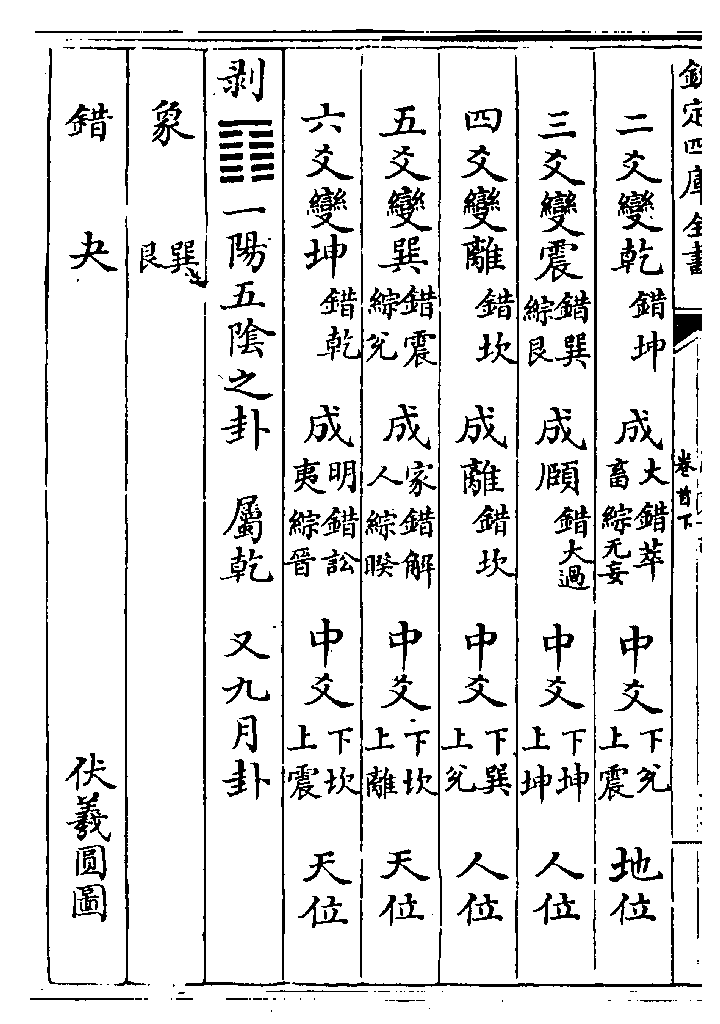 欽定四庫全書
卷首下
二爻變乾錯坤 成大畜錯萃綜无妄 中爻下兌上震 地位
三爻變震錯巽綜艮 成頤錯大過 中爻下坤上坤 人位
四爻變離錯坎 成離錯坎 中爻下巽上兌 人位
五爻變巽錯震綜兌 成家人錯解綜睽 中爻下坎上離 天位
六爻變坤錯乾 成明夷錯訟綜晉 中爻下坎上震 天位
剥䷖一陽五陰之卦 屬乾 又九月卦
象 巽艮
錯 夬 伏羲圓圖